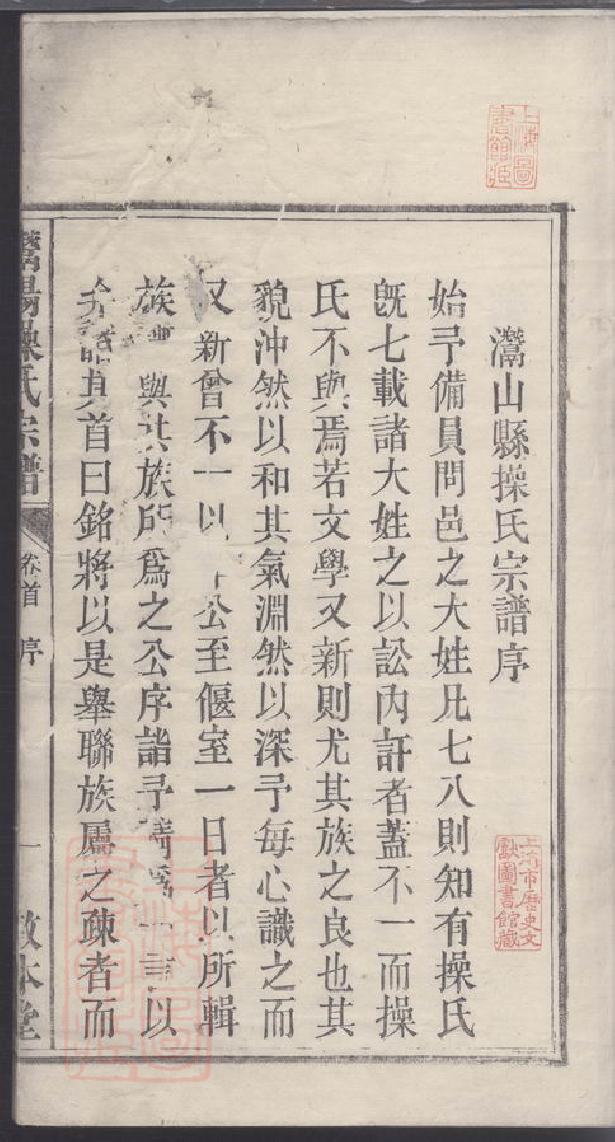 灊山縣操氏宗譜序
始予備員問邑之大姓凡七八則知有操氏
旣七載諸大姓之以訟內訐者蓋不一而操
氏不與焉若文學又新則尤其族之良也其
貌沖然以和其氣淵然以深予每心識之而
又新曾不一以公至偃室一日者以所輯
族與其族所爲之公序詣予請爲言以
弁諸其首曰銘將以是舉聯族屬之疎者而
操氏宗譜
卷首
序
一
敦本堂
上海圖書館藏
上海市歷史文獻圖書館藏